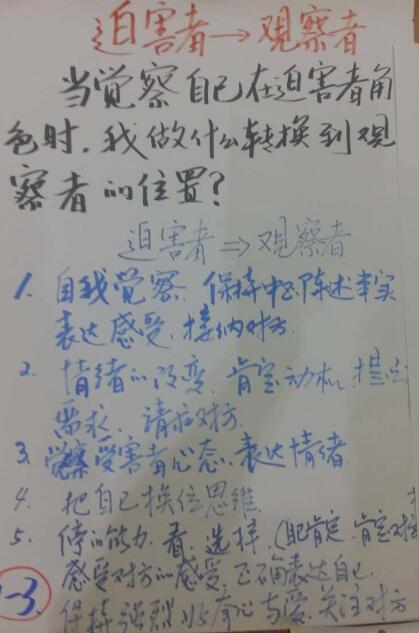 迫害者→观察者
当觉察自己在迫害者角
色时,我做什么转换到观
察者的位置?
迫害者⇒观察者
1. 自我觉察 保持中正 陈述事实
表达感受、接纳对方
2. 情绪的改变、肯定动机、提出
需求、请求对方
3. 觉察受害者心态、表达情绪
4. 把自己换位思维
5. 停的能力、看、选择、(自己肯定、肯定对方
感受对方的感受、正确表达自己
保持强烈好奇心与爱、关注对方
-3